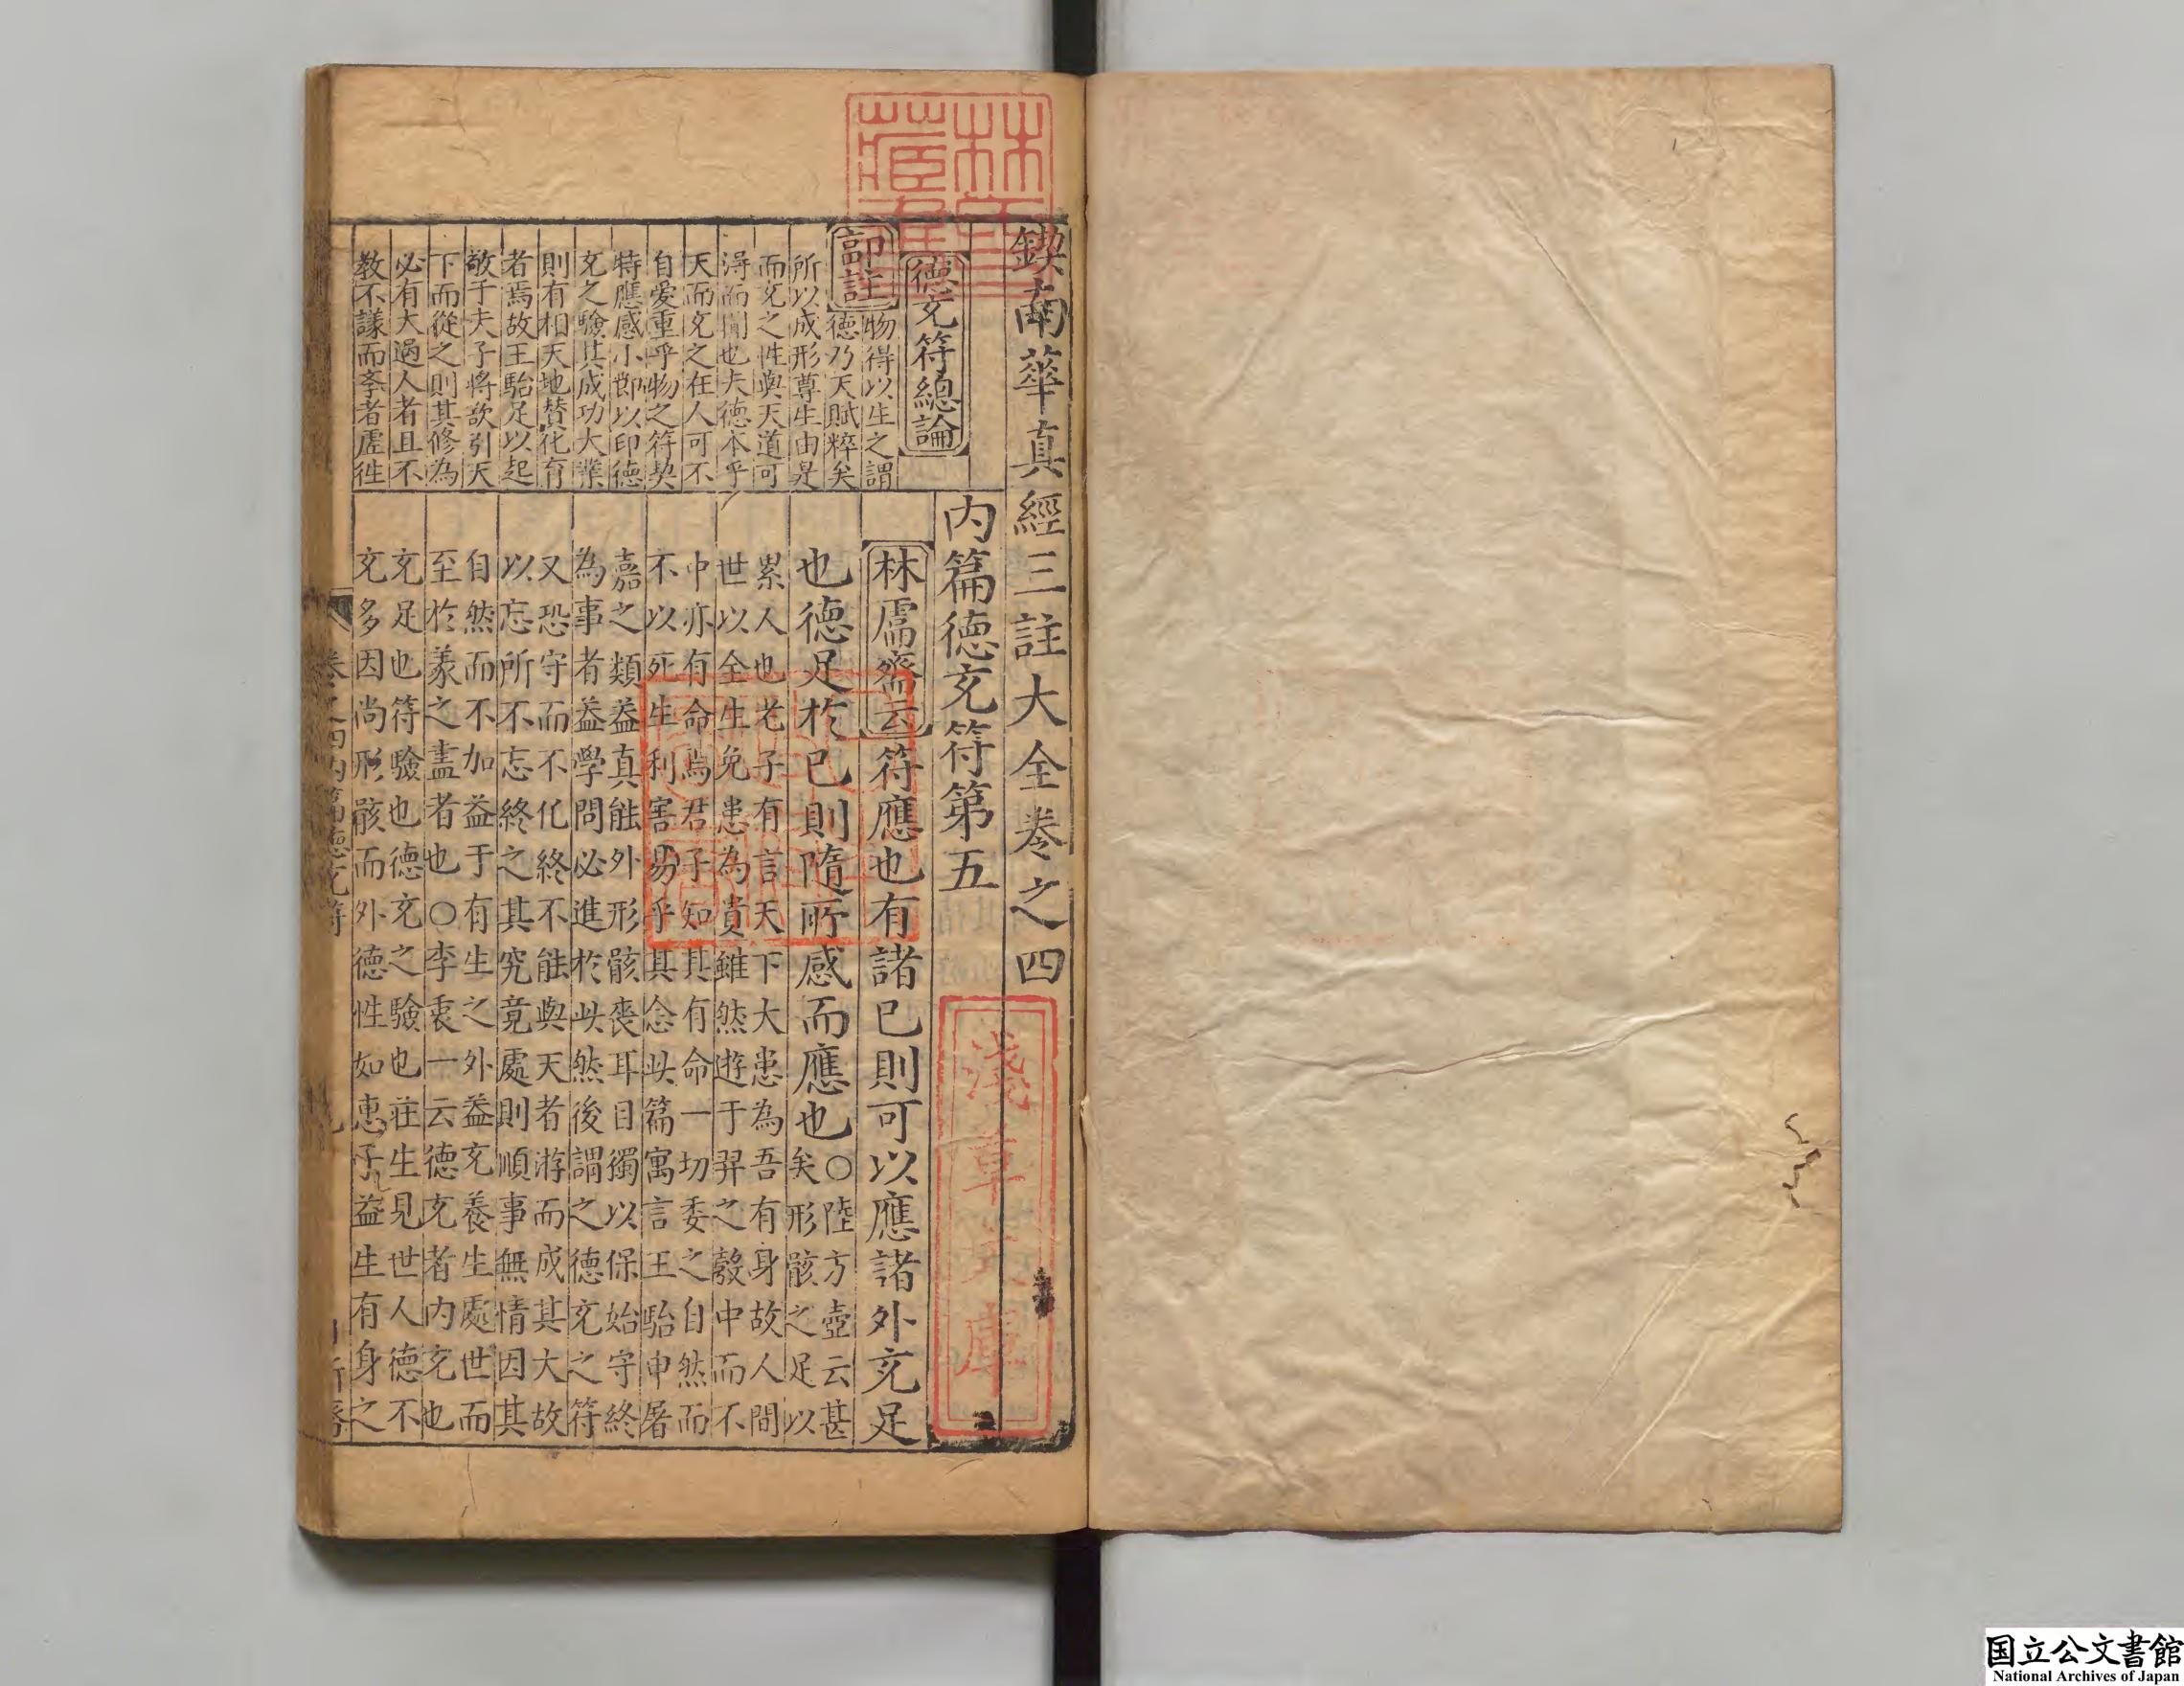 鍥南華真經三註大全卷之四
德充符總論
郭註
物得以生之謂
德乃天賦粹矣
所以成形尊生由是
而充之性與天道可
得而聞也夫德本乎
天而充之在人可不
自愛重乎物之符契
特應感小節以印德
充之驗其成功大業
則有相天地賛化育
者焉故王駘足以起
敬于夫子將欲引天
下而從之則其修為
必有大過人者且不
教不議而來者虛徃
內篇德充符第五
林鬳齋云符應也有諸已則可以應諸外充足
也德足於已則隨所感而應也○陸方壺云甚
矣形骸之足以
累人也老子有言天下大患為吾有身故人間
世以全生免患為貴雖然遊于羿之彀中而不
中亦有命焉君子知其有命一切委之自然而
不以死生利害易乎其念此篇寓言王駘申屠
嘉之類益真能外形骸喪耳目獨以保始守終
為事者益學問必進於此然後謂之德充之符
又恐守而不化終不能與天者游而成其大故
以忘所不忘終之其究竟處則順事無情因其
自然而不加益于有生之外益充養生處世而
至於義之盡者也○李衷一云德充者內充也
充足也符驗也德充之驗也莊生見世人德不
充多因尚形骸而外德性如惠子益生有身之
卷之四內篇德充符
林氏藏書
淺草文庫
国立公文書館
National Archives of Japan